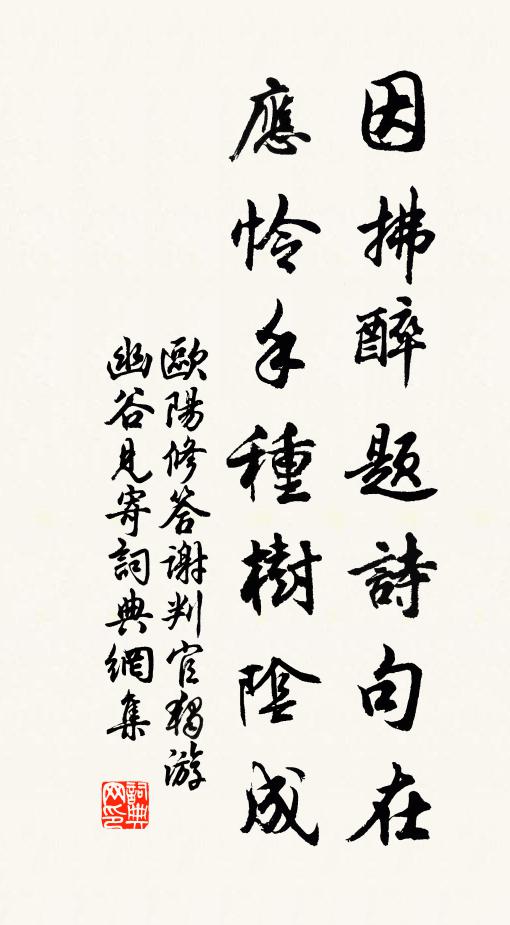 因拂醉題詩句在
應怜手種樹陰成
歐陽修答謝判官獨游
幽谷見寄詞典網集
詞典
网印